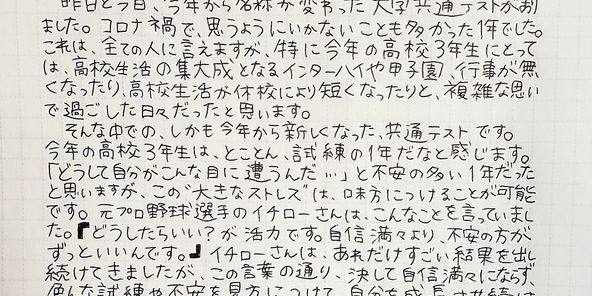 昨日と今日、今年から名称が変わった大学共通テストがあり
ました。コロナ禍で、思うようにいかないことも多かった1年でした。
これは、全ての人に言えますが、特に今年の高校3年生にとって
は、高校生活の集大成となるインターハイや甲子園、行事が無
くなったり、高校生活が休校により短くなったりと、複雑な思い
で過ごした日々だったと思います。
そんな中での、しかも今年から新しくなった、共通テストです。
今年の高校3年生は、とことん、試練の1年だなと感じます。
「どうして自分がこんな目に遭うんだ…」と不安の多い1年だった
と思いますが、この"大きなストレス"は、味方につけることが可能
です。元プロ野球選手のイチローさんは、こんなことを言っていまし
た。『どうしたらいい?が活力です。自信満々より、不安の方が
ずっといいんです。』イチローさんは、あれだけすごい結果を出し
続けてきましたが、この言葉の通り、決して自信満々にならず、
色んな試練や不安を見方につけて、自分を成長させ続け